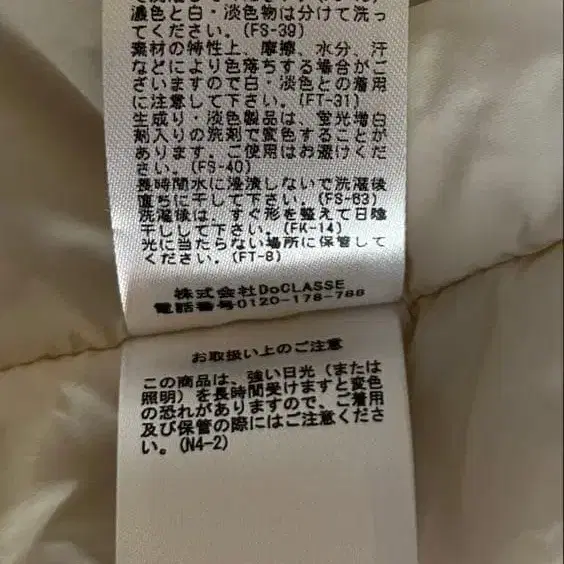 濃色と白・淡色物は分けて洗っ
てください。(FS-39)
素材の特性上、摩擦、水分、汗
などにより色落ちする場合がご
ざいますので白・淡色との着用
に注意して下さい。(FT-31)
生成り・淡色製品は、蛍光増白
剤入りの洗剤で変色することが
あります。ご使用はお避けくだ
さい。(FS-40)
長時間水に浸漬しないで洗濯後
直ちに干して下さい。(FS-63)
洗濯後は、すぐ形を整えて日陰
干しして下さい。(FK-14)
光に当たらない場所に保管して
ください。(FT-8)
株式会社DoCLASSE
電話番号0120-178-788
お取扱い上のご注意
この商品は、強い日光（または
照明）を長時間受けますと変色
の恐れがありますので、ご着用
及び保管の際にはご注意くださ
い。(N4-2)